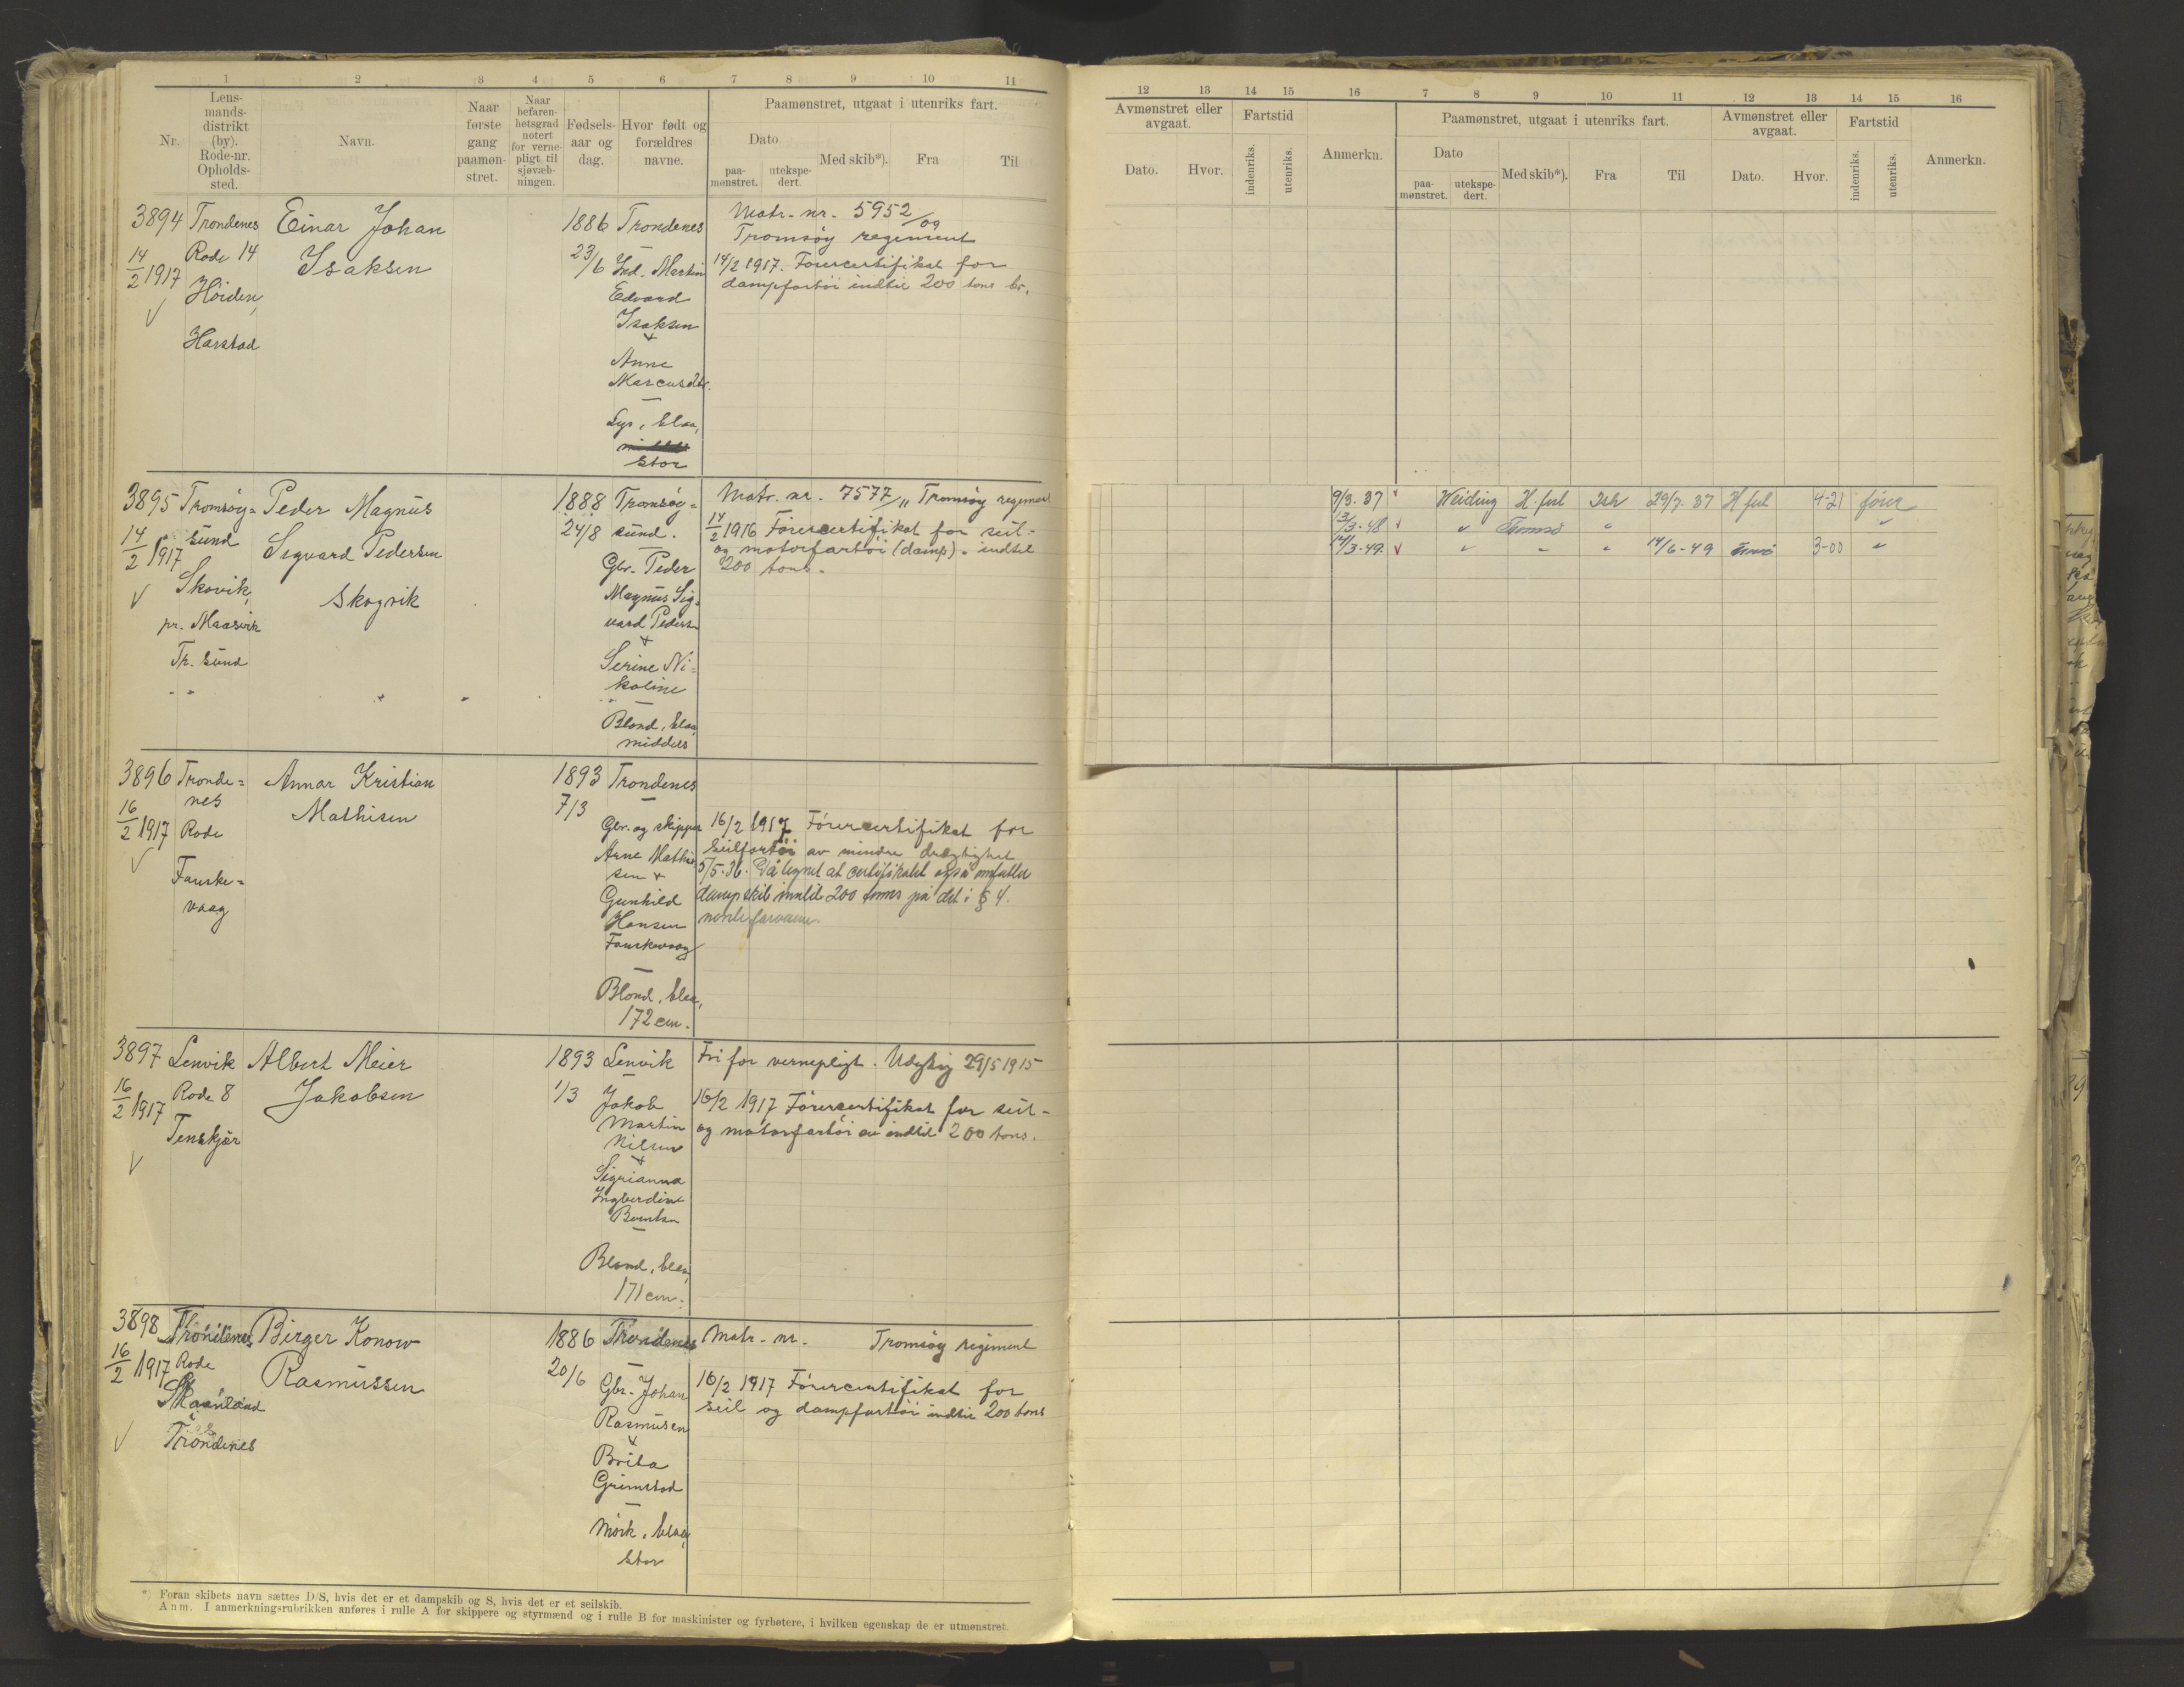 1 2 3 4 5 6 7 8 9 10 11
Nr.
Lens-
mands-
distrikt
(by).
Rode-nr.
Opholds-
sted.
Navn.
Naar
første
gang
paamøn-
stret.
Naar
befaren-
hetsgrad
notert
for verne-
pligt til
sjøvæb-
ningen.
Fødsels-
aar og
dag.
Hvor født og
forældres
navne.
Paamønstret, utgaat i utenriks fart.
Dato
paa-
mønstret.
utekspe-
dert.
Med skib*).
Fra
Til
3894
14/2 1917
√
Trondenes
Rode 14
Höiden,
Harstad
Einar Johan
Isaksen
1886
23/6
Trondenes
Ind. Martin
Edvard
Isaksen
+
Anne
Marcusdtr.
Lys, blaa,
stor
Matr. nr. 5952/09
Tromsöy regement
14/2 1917. Förercertifikat for
dampfartöi indtil 200 tons br.
3895
14/2 1917
√
Tromsöy=
sund
Skovik,
pr. Maasvik
Tr. sund
Peder Magnus
Sigvard Pedersen
Skogvik
1888
24/8
Tromsöy=
sund.
Gbr. Peder
Magnus Sig=
vard Pedersen
+
Serine Ni=
koline
Blond, blaa,
middels
Matr. nr. 7577/11 Tromsöy regement
14/2 1916 Förercertifikat for seil-
og motorfartöi (damp) - indtil
200 tons.
3896
16/2 1917
√
Tronde=
nes
Rode
Fauske=
vaag
Annar Kristian
Mathisen
1893
7/3
Trondenes
Gbr. og skipper
Arne Mathi
sen +
Gunhild
Hansen
Fauskevaag
Blond, blaa,
172 cm.
16/2 1917 Förercertifikat for
seilfartöi av mindre drægtighet
5/5-36. Påtegnet at certifikatet også omfatter
dampskib inntil 200 tonns på det i § 4.
nevnte farvann.
3897
16/2 1917
√
Lenvik
Rode 8
Tenskjær
Albert Meier
Jakobsen
1893
1/3
Lenvik
Jakob
Martin
Nilsen
+
Sigrianna
Ingberdine
Berntsen
Blond, blaa,
171 cm.
Fri for vernepligt. Udygtig 29/5 1915
16/2 1917 Förercertifikat for seil-
og motorfartöi av indtil 200 tons.
3898
16/2 1917
√
Trondenes
Rode
Skaanland
Trondenes
Birger Konow
Rasmussen
1886
20/6
Trondenes
Gbr. Johan
Rasmusen
+
Brita
Grimstad
Mörk, blaa,
stor
Matr. nr. Tromsöy regiment
16/2 1917 Förercertifikat for
seil og dampfartöi indtil 200 tons
*) Foran skibets navn sættes D/S, hvis det er et dampskib og S, hvis det er et seilskib.
Anm. I anmerkningsrubrikken anføres i rulle A for skippere og styrmænd og i rulle B for maskinister og fyrbøtere, i hvilken egenskap de er utmønstret.
12 13 14 15 16 7 8 9 10 11 12 13 14 15 16
Avmønstret eller
avgaat.
Dato.
Hvor.
Fartstid
indenriks.
utenriks.
Anmerkn.
Paamønstret, utgaat i utenriks fart.
Dato
paa-
mønstret.
utekspe-
dert.
Med skib*).
Fra
Til
Avmønstret eller
avgaat.
Dato.
Hvor.
Fartstid
indenriks.
utenriks.
Anmerkn.
9/3. 37 √ Weiding H. fest Ish 29/7. 37 H fest 4-21 förer
13/3-48 √ " Tromsö " "
14/3-49. √ " " " 14/6-49 3-00 "